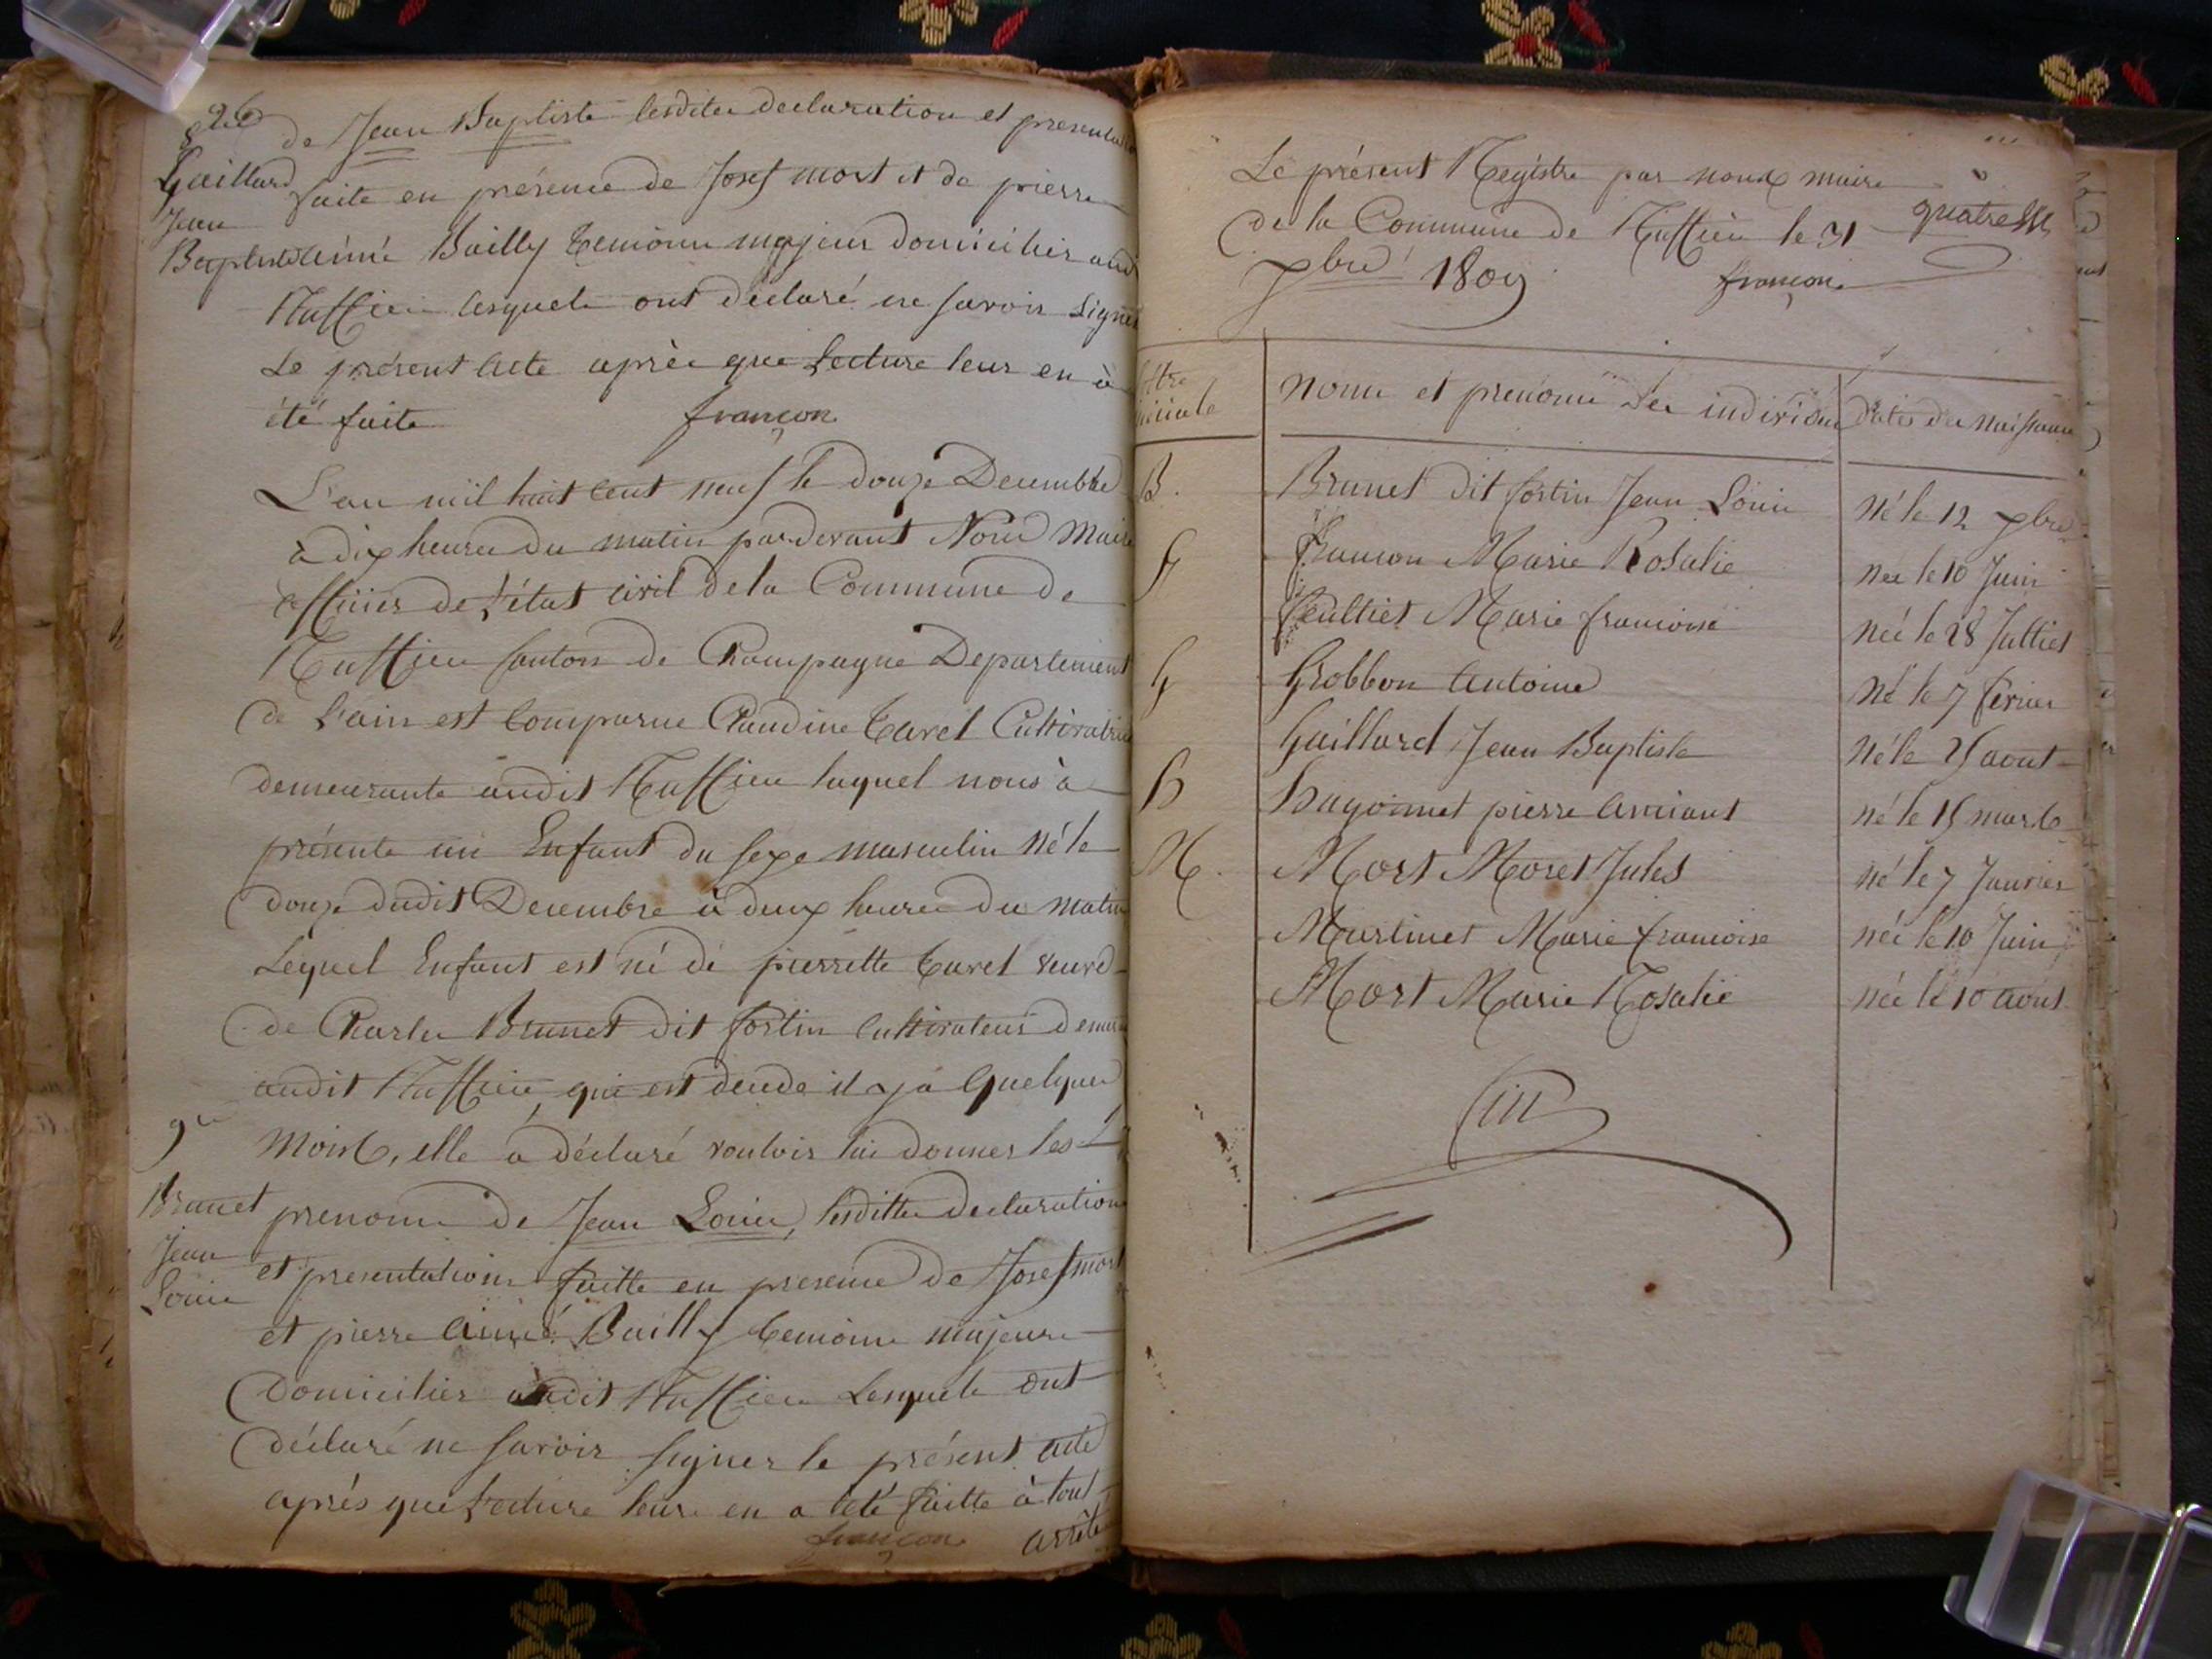 8me
Gaillard
Jean
Baptiste
de Jean Baptiste lesdites declaration et presentation
faite en présence de Josef mort et de pierre
aimé Bailly temoins majeurs domiciliés audit
Ruffieu lesquels ont déclaré ne savoir signer
Le présent acte après que Lecture leur en à
été faite françon
L'an mil huit cent neuf le douze Decembre
à dix heures du matin pardevant Nous Maire
officier de l'état civil de la Commune de
Ruffieu Canton de Champagne Departement
de L'ain est Comparue Claudine Caret Cultivatrice
demeurante audit Ruffieu laquel nous à
présenté un Enfant du sexe masculin Né le
douze dudit Decembre à deux heures du matin
Lequel Enfant est né de pierrette Caret veuve
de Charles Brunet dit fortin Cultivateur
audit Ruffieu, qui est decede il y a quelques
9e
Brunet
Jean
Louis
Mois, elle à déclaré vouloir lui donner les
prenoms de Jean Louis, lesdittes declaration
et presentation faitte en presence de Josef mort
et pierre Aimé Bailly temoins majeurs
domiciliés audit Ruffieu Lesquels ont
déclaré ne savoir signer le présent acte
après que Lecture leurs en a été faitte
françon arrêté
Le présent Registre par nous maire
de la Commune de Ruffieu le 31
xbre 1809 françon
Lettre
initiale
Noms et prenoms des individus
Dates des Naissances
B. Brunet dit fortin Jean Louis Né le 12 xbre
F françon Marie Rosalie née le 10 Juin
feulliet Marie françoise née le 28 Julliet
G Grobbon Antoine Né le 7 fevrier
Gaillard Jean Baptiste Né le 25 aout
H Hugonnet pierre né le 15 mars
M. Mort Moret Jules né le 7 Janvier
Martinet Marie françoise née le 10 Juin
Mort Marie Rosalie née le 10 aout
fin